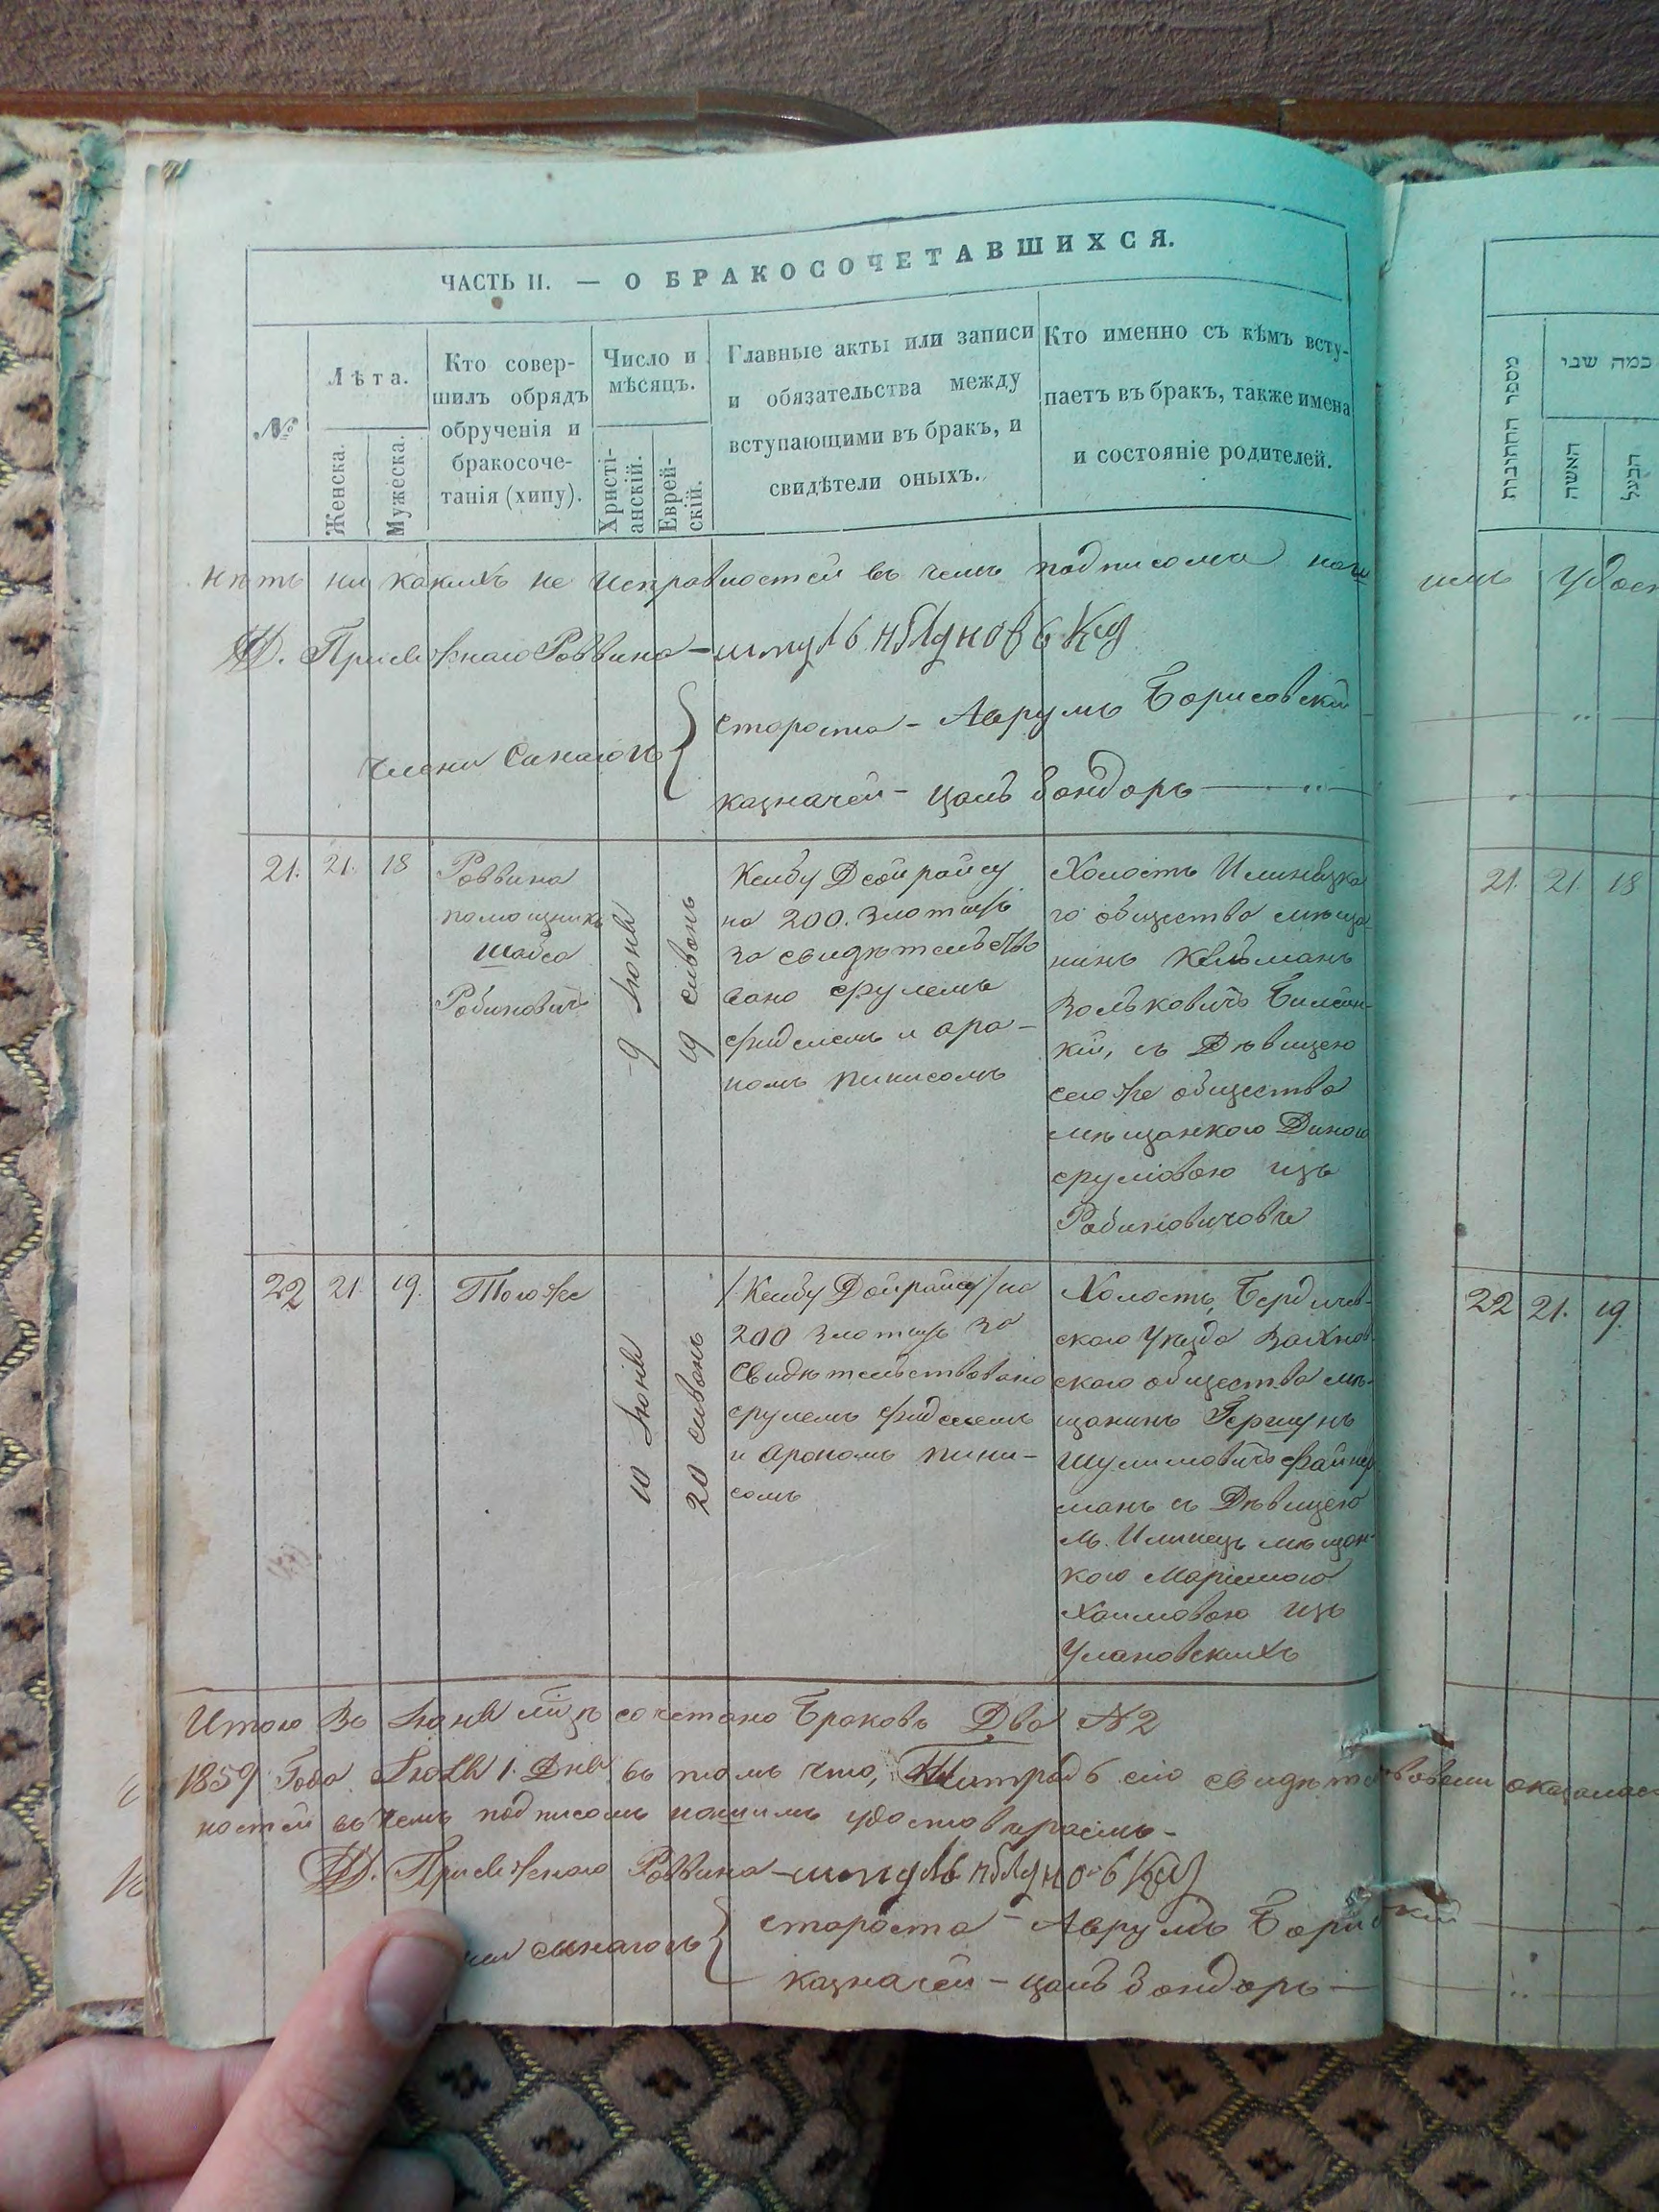 ЧАСТЬ II. — О БРАКОСОЧЕТАВШИХСЯ.
№
Лѣта.
Женска.
Мужеска.
Кто совер-
шилъ обрядъ
обрученія и
бракосоче-
танія (хипу).
Число и
мѣсяцъ.
Христі-
анскій.
Еврей-
скій.
Главные акты или записи
и обязательства между
вступающими въ бракъ, и
свидѣтели оныхъ.
Кто именно съ кѣмъ всту-
паетъ въ бракъ, также имена
и состояніе родителей.
מספר החתובות
כמה שני
האשה
הבעל
нѣтъ ни какихъ не исправностей въ чемъ подписома наш
имъ удост
Д. Присяжнаго Раввина —
члени Синагогъ
староста — Аврумъ Борисовскій
казначей — цаль Бондоръ
21. 21. 18
Раввина
помощникъ
Шабса
Рабиновичъ
9 Іюня
19 сивонь
Кеибу Дсойрайсу
на 200. злотыхъ
за свидѣтельство
вано срулемъ
фиделемъ и аро-
номъ пинисомъ
Холостъ Илинецка
го общества мѣща
нинъ Кельманъ
Вольковичъ Билин-
кій, съ Дѣвицею
сего же общества
мѣщанкою Диною
сруловою изъ
Рабиновичовъ
21. 21. 18
22 21. 19.
Того же
10 Іюня
20 сивонь
/Кеибу Дойрайсу/ на
200 злотыхъ за
Свидѣтельствовано
срулемъ фиделемъ
и Арономъ пини-
сомъ
Холостъ, Бердичев-
скаго Уѣзда Вахнов-
скаго общества мѣ-
щанинъ Гершунъ
Шулимовичъ Файнер
манъ съ Дѣвицею
м. Илинецъ мѣщан-
кою Маріемою
Хаимовою изъ
Улановскихъ
22 21. 19.
Итого въ Іюня мцѣ сочетано Браковъ Два № 2
1859 Года Іюля 1. Дня въ томъ что, тетрадь сію свидѣт вовали оказалас
ностей въ чемъ подписомъ нашимъ удостовѣраемъ —
Д. Присяжнаго Раввина —
синагогъ
староста — Аврумъ Бори кій
казначей — цаль Бондоръ —